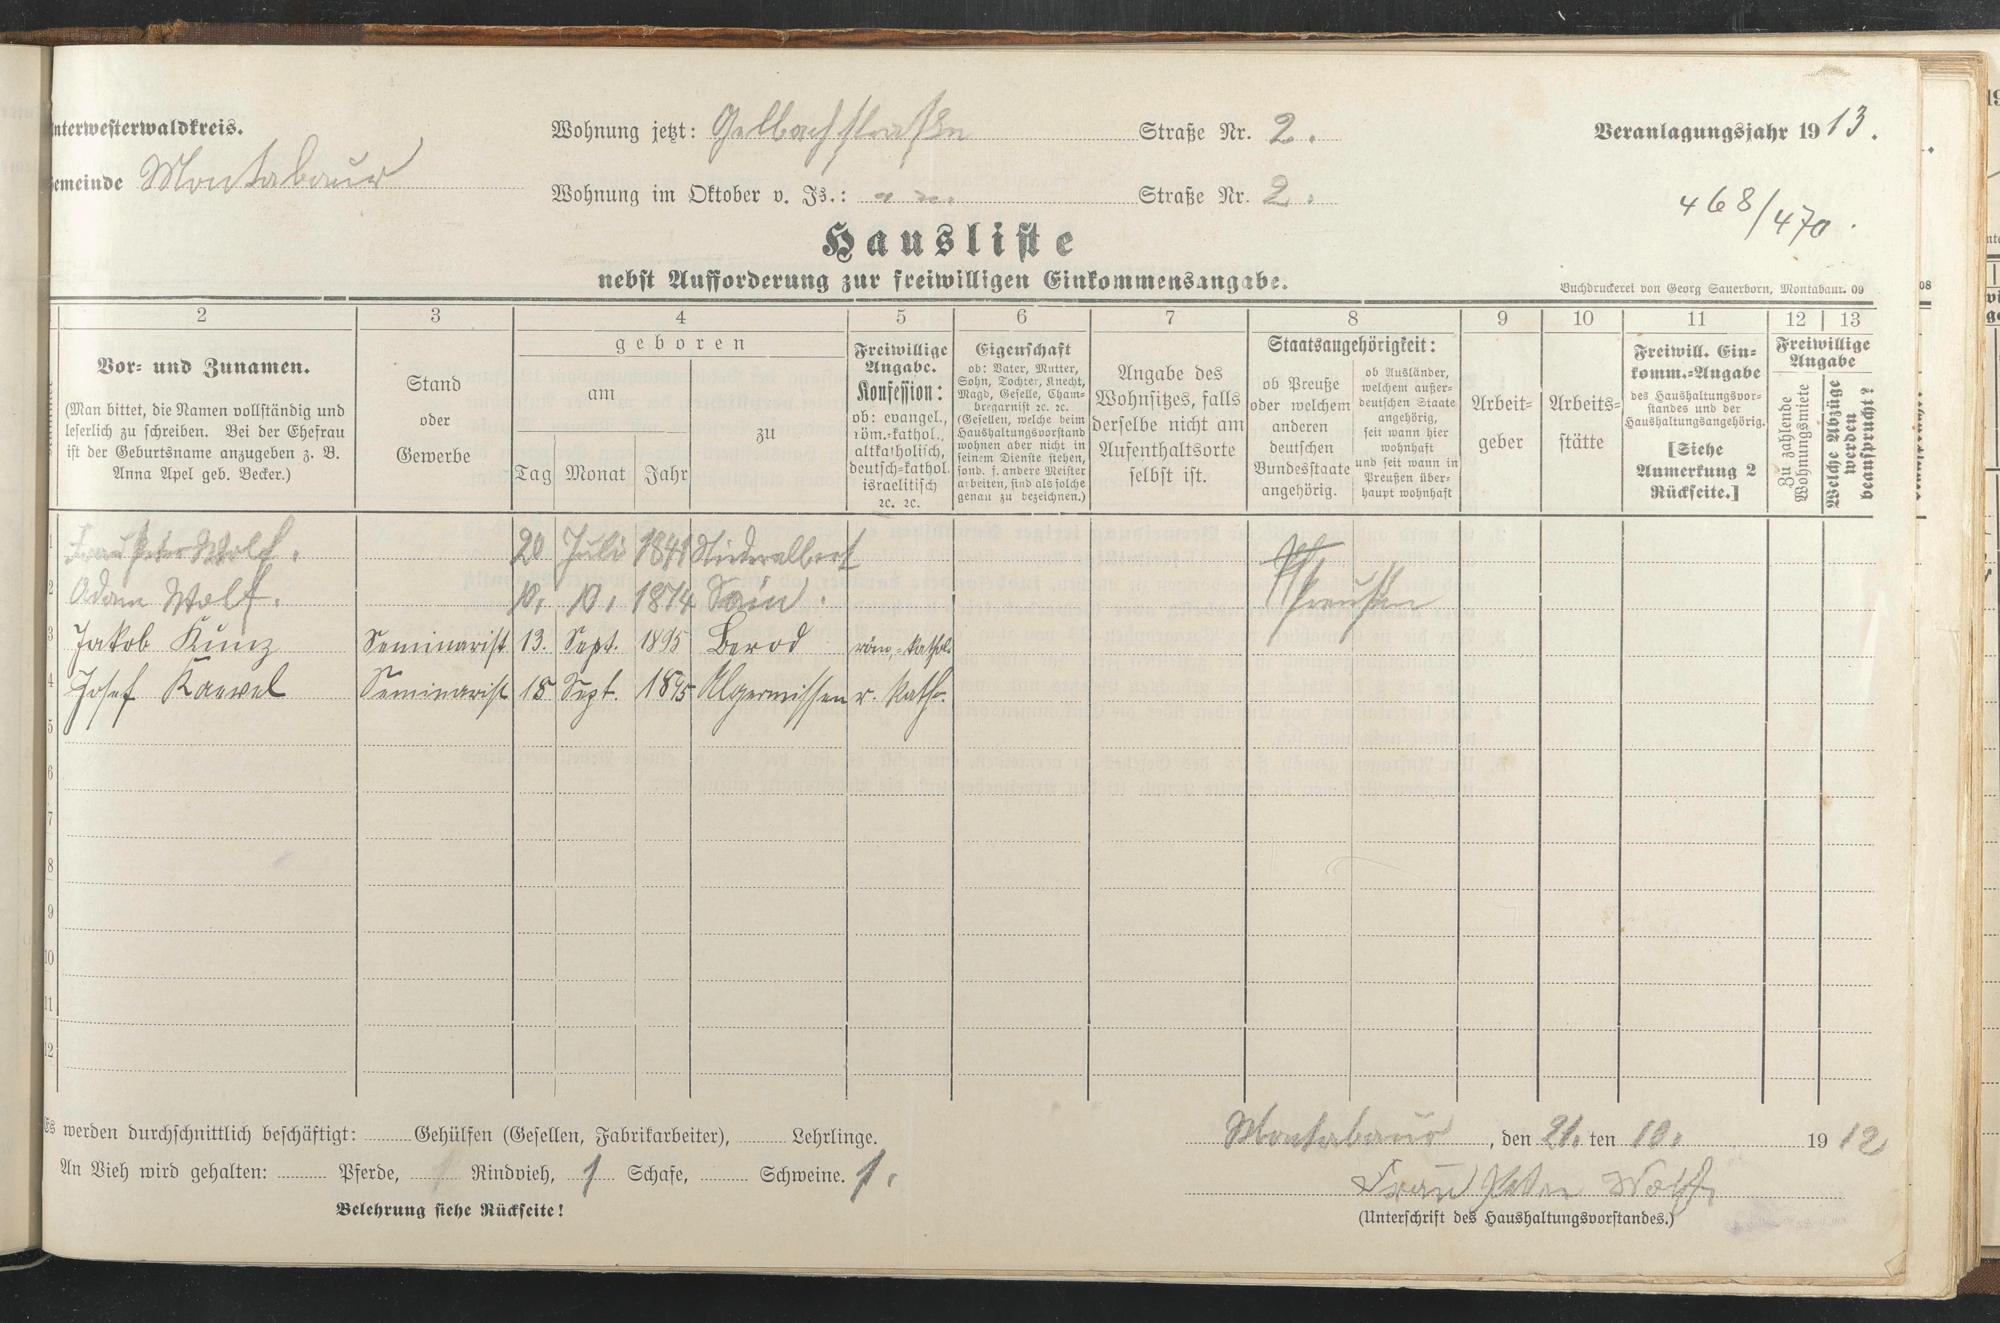 Unterwesterwaldkreis.
Gemeinde Montabaur
Wohnung jetzt: Gelbachstraße Straße Nr. 2.
Wohnung im Oktober v. Js.: Straße Nr. 2.
Veranlagungsjahr 1913.
468/470.
Hausliste
nebst Aufforderung zur freiwilligen Einkommensangabe.
Buchdruckerei von Georg Sauerborn, Montabaur. 09
2 3 4 5 6 7 8 9 10 11 12 13
Vor- und Zunamen.
(Man bittet, die Namen vollständig und
leserlich zu schreiben. Bei der Ehefrau
ist der Geburtsname anzugeben z. B.
Anna Apel geb. Becker.)
Stand
oder
Gewerbe
geboren
am
zu
Tag Monat Jahr
Freiwillige
Angabe.
Konfession:
ob: evangel.,
röm.-kathol.,
altkatholisch,
deutsch-kathol.
israelitisch
2c. 2c.
Eigenschaft
ob: Vater, Mutter,
Sohn, Tochter, Knecht,
Magd, Geselle, Cham-
bregarnist 2c. 2c.
(Gesellen, welche beim
Haushaltungsvorstand
wohnen aber nicht in
seinem Dienste stehen,
sond. f. andere Meister
arbeiten, sind als solche
genau zu bezeichnen.)
Angabe des
Wohnsitzes, falls
derselbe nicht am
Aufenthaltsorte
selbst ist.
Staatsangehörigkeit:
ob Preuße
oder welchem
anderen
deutschen
Bundesstaate
angehörig.
ob Ausländer,
welchem außer-
deutschen Staate
angehörig,
seit wann hier
wohnhaft
und seit wann in
Preußen über-
haupt wohnhaft
Arbeit-
geber
Arbeits-
stätte
Freiwill. Ein-
komm.-Angabe
des Haushaltungsvor-
standes und der
Haushaltungsangehörig.
[Siehe
Anmerkung 2
Rückseite.]
Freiwillige
Angabe
Zu zahlende
Wohnungsmiete
Welche Abzüge
werden
beansprucht?
1 Frau Peter Wolf. 20 Juli 1841 Niederelbert
2 Adam Wolf. 10. 10. 1874 Sain. Preußen
3 Jakob Kunz Seminarist 13. Sept. 1895 Berod röm.-kathol.
4 Josef Seminarist 18 Sept. 1895 Algermissen r. kath.
5
6
7
8
9
10
11
12
Es werden durchschnittlich beschäftigt: Gehülfen (Gesellen, Fabrikarbeiter), Lehrlinge.
An Vieh wird gehalten: Pferde, 1 Rindvieh, 1 Schafe, Schweine. 1.
Belehrung siehe Rückseite!
Montabaur, den 21. ten 10. 1912
Frau Peter Wolf
(Unterschrift des Haushaltungsvorstandes.)